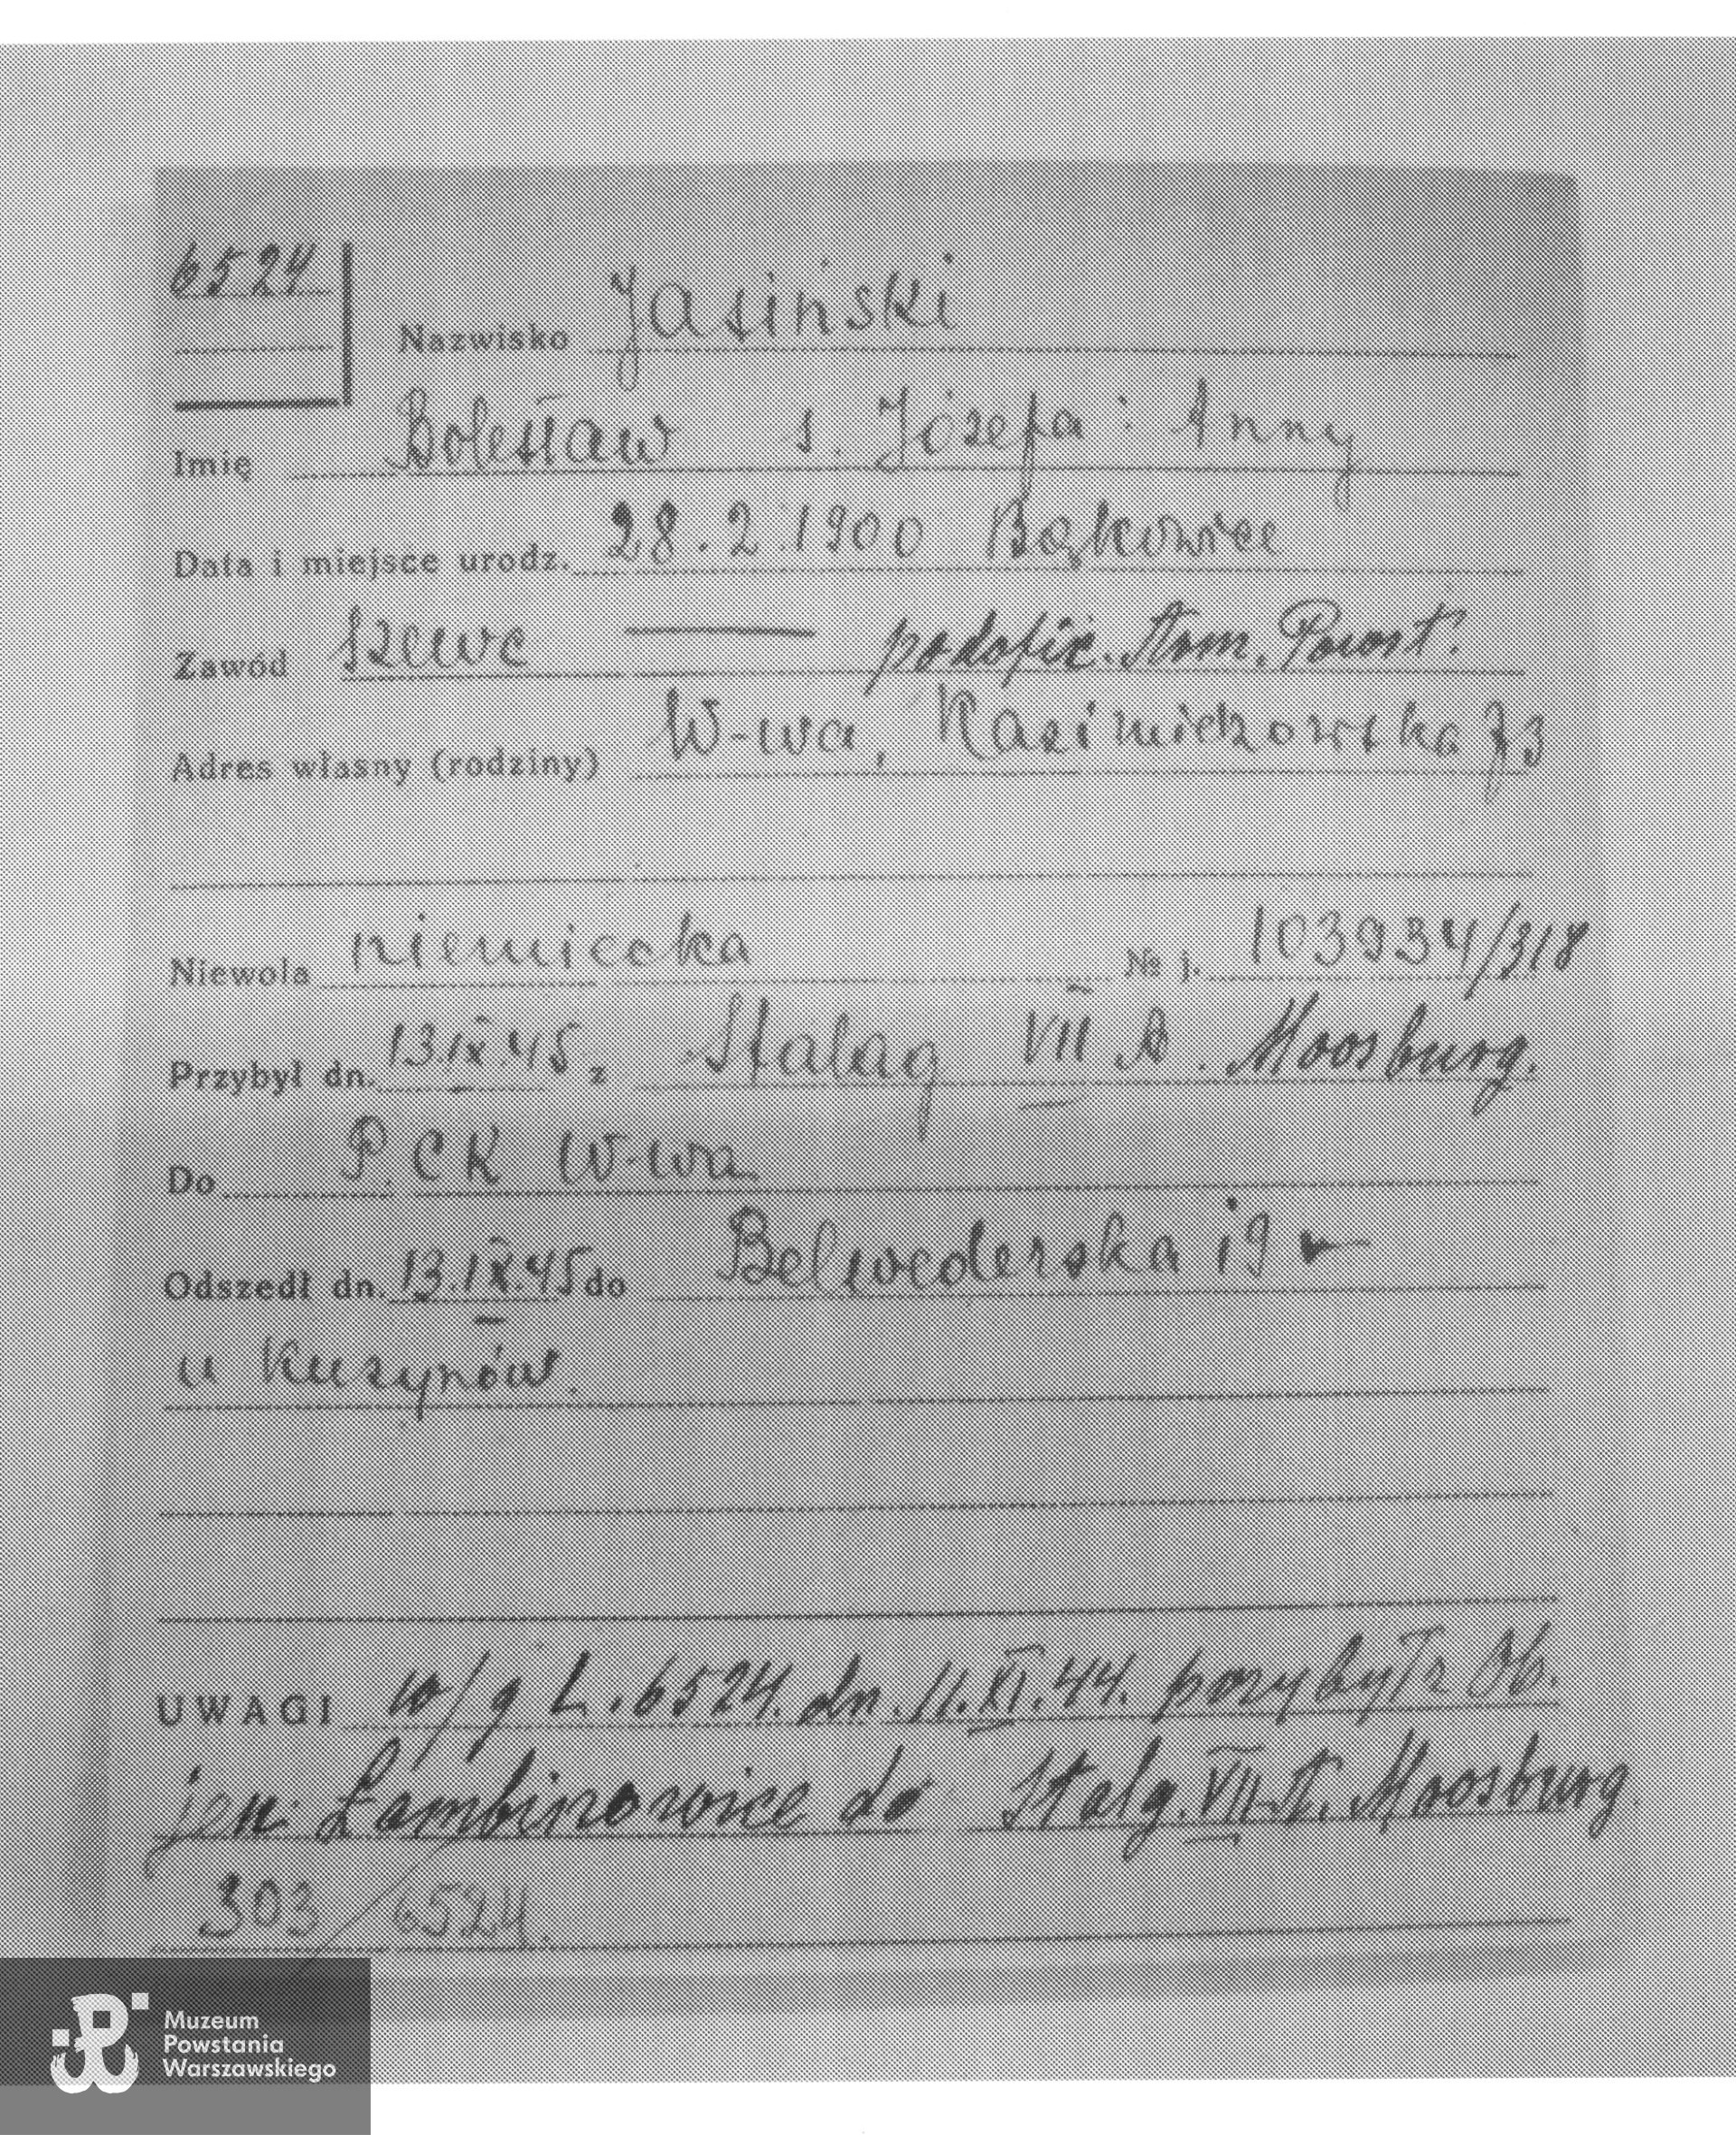 6524
Nazwisko Jasiński
Imię Bolesław s. Józefa i Anny
Data i miejsce urodz. 28.2.1900 Bąkowiec
Zawód szewc — podofic. Arm. Powst.
Adres własny (rodziny) W-wa, Kazimierzowska 73
Niewola niemiecka № j. 103934/318
Przybył dn. 13.IX.45 z Stalag VII A. Moosburg.
Do P.CK W-wa
Odszedł dn. 13.IX.45 do Belwederska 19
u Kuzynów.
UWAGI w/g L. 6524. dn. 11.XI.44. przybył z Ob.
jen. Łambinowice do Stalg. VII A. Moosburg.
303/6524.
Muzeum
Powstania
Warszawskiego